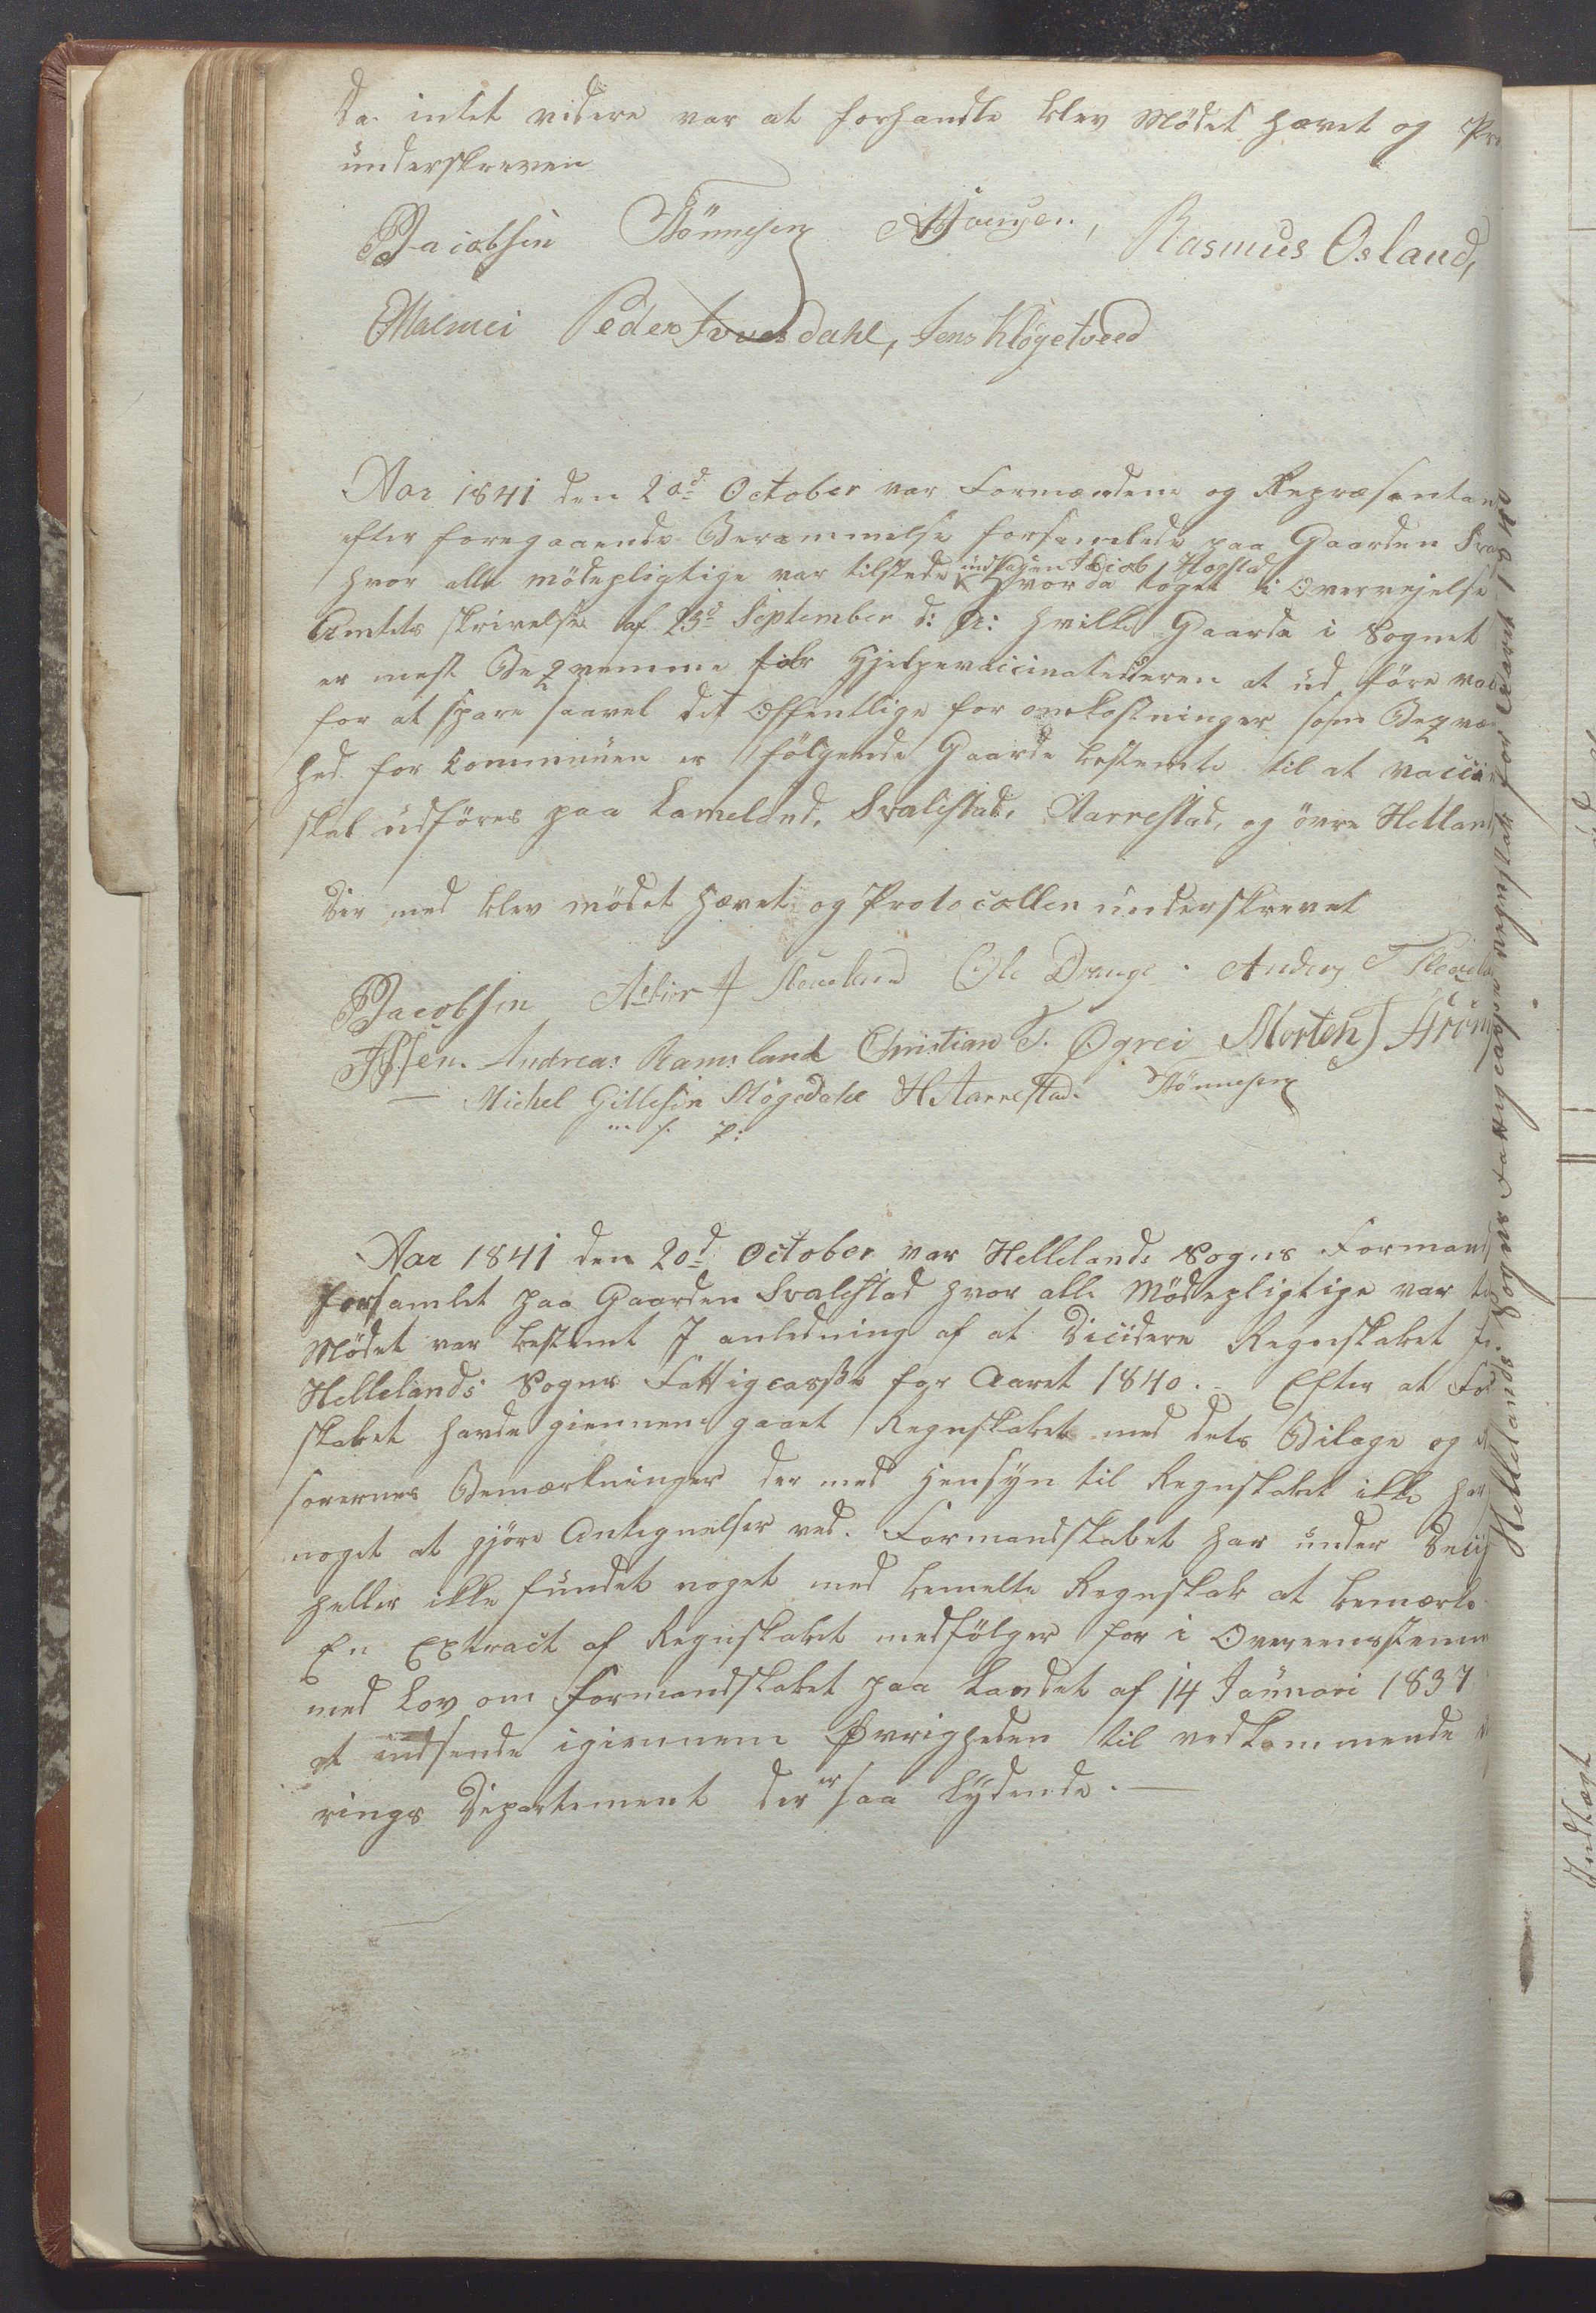 Da intet videre var at forhandle blev Mödet hævet og Pr
underskreven
Jacobsen Tönnesen Rasmus Osland,
OMaemei Peder Ivuesdahl, Jens Klögetveed
Aar 1841 den 20d October var Formændene og Repræsentan
efter foregaaende Berammelse forsamlede paa Gaarden Sva
hvor alle mödepligtige var tilstede undtagen Jacob Hogstad
Hvor da toges i Overvejelse
Amtets skrivelse af 23d September d: A: hvilke Gaarde i Sognet
er mest Beqvemme for Hjelpevaccinateuren at udföre vac
for at spare saavel det Offentlige for omkostninger som Beqve
hed for Communen er fölgende Gaarde bestemte til at vacci
skal udföres paa Lameland, Svalestad, Aarrestad, og övre Helland
Der med blev mödet hævet og Protocollen underskrevet
Jacobsen Asbiør A Skouelund Ole Drange. Anders T
Andreas Ramsland Christian T. Øgrei Morten J
Michel Gillesen Mögedahl H Aarrestad. Tönnesen
m. f. P:
Aar 1841 den 20d October var Hellelands Sogns Formand
forsamlet paa Gaarden Svalestad hvor alle Mödepligtige var ti
Mödet var bestemt I anledning af at Decidere Regnskabet fo
Hellelands Sogns Fattigcasse for Aaret 1840. Efter at Fo
skabet havde giennemgaaet Regnskabet med dets Bilage og
sorernes Bemærkninger der med Hensyn til Regnskabet ikke har
noget at gjöre Antegnelser ved. Formandskabet har under Deci
heller ikke fundet noget med bemelte Regnskab at bemærke
En Extract af Regnskabet medfölger for i Overeensstemm
med Lov om formandskabet paa Landet af 14 Januari 1837
at indsende igiennem Øvrigheden til vedkommende
rings Departement der er saa lydende. —
Hellelands Sogns Fattigcasse regnskab for Aaret 1840
Indtægt